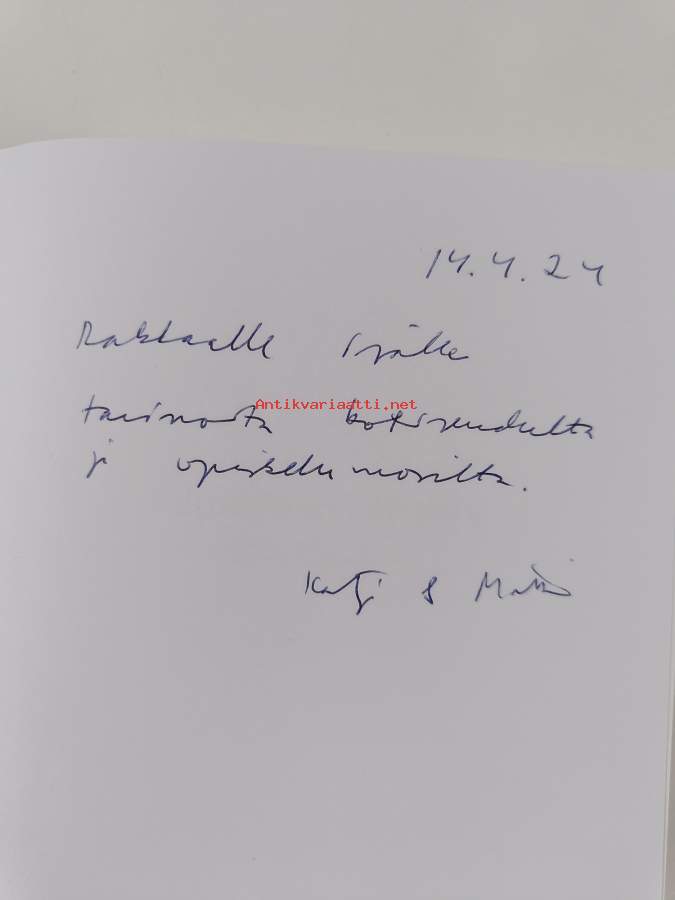 14.4.24
Rakkaalle Isälle
Antikvariaatti.net
tarinoita kotiseudulta
ja opiskeluvuosilta.
Katja & Matti